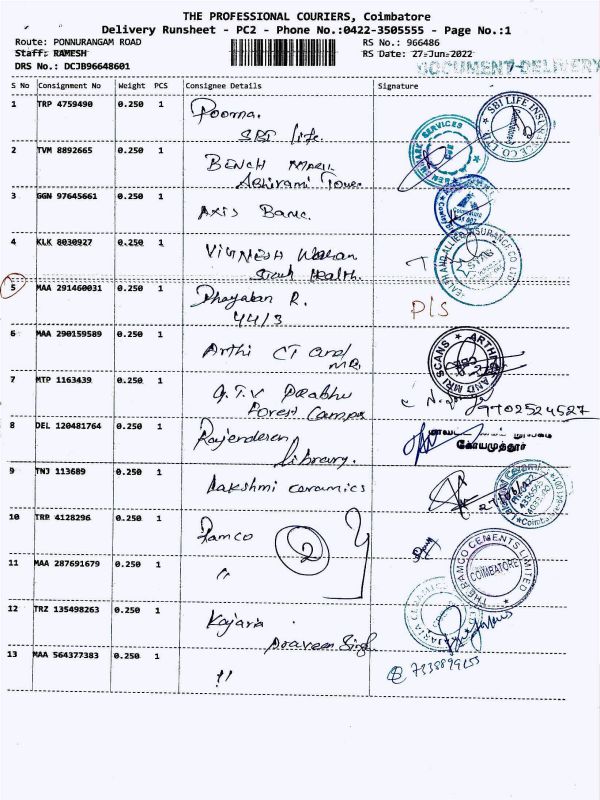 THE PROFESSIONAL COURIERS, Coimbatore
Delivery Runsheet - PC2 - Phone No.:0422-3505555 - Page No.:1
Route: PONNURANGAM ROAD RS No.: 966486
Staff: RAMESH RS Date: 27-Jun-2022
DRS No.: DCJB96648601 DOCUMENT-DELIVERY
S No Consignment No Weight PCS Consignee Details Signature
1 TRP 4759490 0.250 1 Poorna.
SBI life.
SBI LIFE INSURANCE CO LTD
2 TVM 8892665 0.250 1 BENCH MARK
Abhirami Tower
SERVICES
3 GGN 97645661 0.250 1 Axis Bank.
4 KLK 8030927 0.250 1 VIGNESH
Star Health.
HEALTH AND ALLIED INSURANCE CO LTD
5 MAA 291460031 0.250 1 Dhayalan R. D/S
44/3
6 MAA 290159589 0.250 1 Arthi CT and
MRI
ARTHI AND MRI SCANS
7 MTP 1163439 0.250 1 G.T.V Prabhu
Forest Campus
9702524527
8 DEL 120481764 0.250 1 Rajenderan
Library.
கோயமுத்தூர்
9 TNJ 113689 0.250 1 Lakshmi ceramics
10 TRP 4128296 0.250 1 Ramco 2
11 MAA 287691679 0.250 1 "
THE RAMCO CEMENTS LIMITED
COIMBATORE
12 TRZ 135498263 0.250 1 Kajaria
Praveen Singh
13 MAA 564377383 0.250 1 "